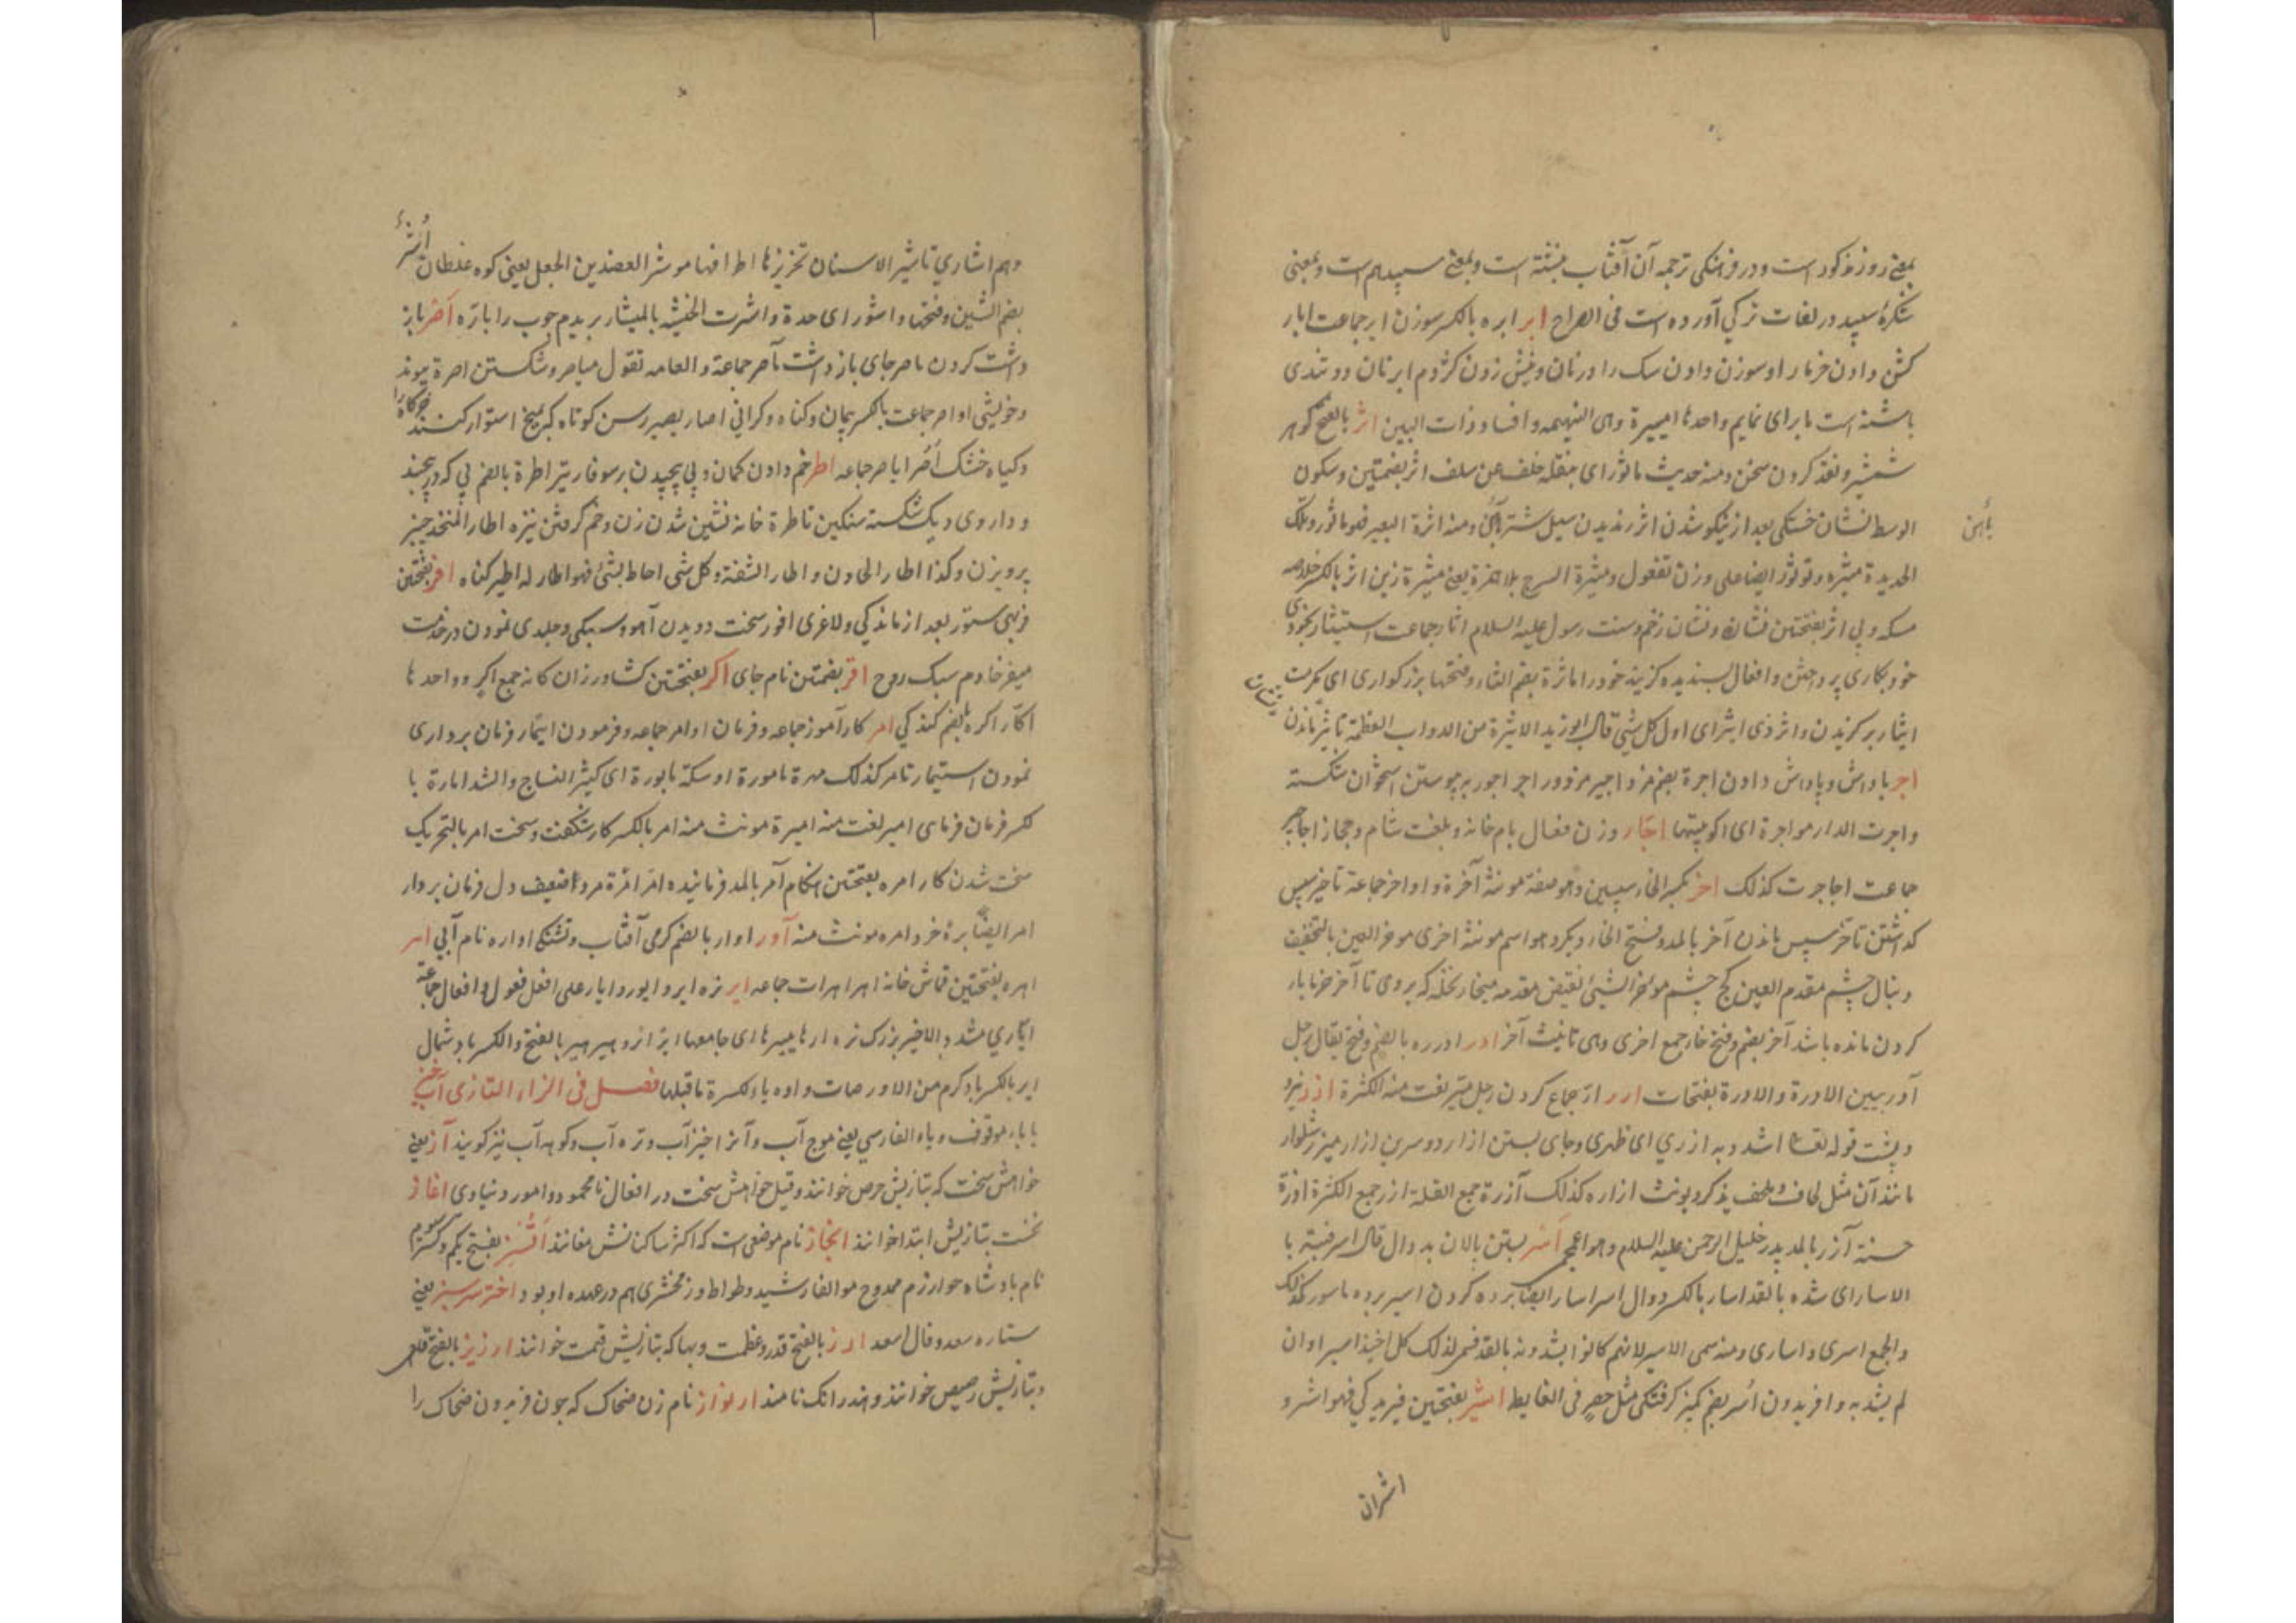 بمعنی روز مذکور است و در فرهنگی ترجمه آن آفتاب نبشته است و بمعنی سپید هم است و بمعنی
شکرهٔ سپید در لغات ترکی آورده است فی الصراح ابر ابره بالکسر سوزن ابر جماعت ابار
کشن دادن خرما را و سوزن دادن سک را در نان و نیش زدن کژدم ابرتان دو تندی
باشنه است مابر ای نمایم واحدها امیبرة وهی النمیمه و افساد ذات البین اثر بالفتح کوهر
شمشیر و نقد کردن سخن ومنه حدیث ماثور ای ینقله خلف عن سلف اثر بضمتین و سکون
الوسط نشان خستکی بعد از نیکو شدن اثر رندیدن سپل شتر بآهن ومنه اثرة البعیر فهو ماثور و تلک
بآهن
الحدیدة میثره و توثور ایضا علی وزن تفعول ومیثرة السرج بلا همزة یعنی میثرة زین اثر بالکسر خلاصه
مسکه و پی اثر بفتحتین نشان و نشان زخم و سنت رسول علیه السلام اثار جماعت استیثار بخودی
خود بکاری پرداختن و افعال پسندیده کزیند خود را ماثرة بضم الثاء و فتحها بزرکواری ای مکرمت
ایثار برکزیدن و اثر ذی اثیر ای اول کل شیٔ قال ابوزید الاثیرة من الدواب العظمة تاثیر ماندن
نشان
اجر پاداش و پاداش دادن اجرة بضم مزد اجیر مزدور اجر اجور بر پیوستن استخوان شکسته
و اجرت الدار مواجرة ای اکریتها اجّار وزن فعال بام خانه و بلغت شام و حجاز اجاجیر
جماعت اجاجرت کذلک اخر بکسر الخاء سپسین وهو صفة مونثه آخرة و اواخر جماعة تاخیر سپس
کذاشتن تاخر سپس ماندن آخر بالمد و فتح الخاء دیکر وهو اسم مونثه اخری موخر العین بالتخفیف
دنبال چشم مقدم العین کنج چشم موخر الشیٔ نقیض مقدمه میخار نخله که بروی تا آخر خرما بار
کردن مانده باشد آخر بضم و فتح خا جمع اخری وهی تانیث آخر ادر ادرره بالضم و فتح یقال رجل
آدر بیین الادرة والادرة بفتحات ارر ارّ جماع کردن رجل میّر لغت منه الکثرة ازر نیرو
و پشت قوله تعا اشدد به ازری ای ظهری و جای بستن ازار دوسرین ازار میزر شلوار
مانند آن مثل لحاف و ملحف یذکر و یونث ازاره کذلک آزرة جمع القلة ازر جمع الکثرة ازرة
حسنة آزر بالمد پدر خلیل الرحمن علیه السلام وهو اعجمی اسر بستن پالان بدوال قال اسر قتبه یا
الاسار ای شده بالقد اسار بالکسر دوال اسر اسار ایضا برده کردن اسیر برده ماسور کذلک
والجمع اسری و اساری ومنه سمی الاسیر لانهم کانوا یشدونه بالقد فسمی لذلک کل اخیذ اسیر او ان
لم یشد به و افریدون اُسر بضم کمیز کرفتکی مثل حصر فی الغایط اشر بفتحتین فیریدکی فهو اشر و
اشران
وهم اشاری تاشیر الاسنان تحزیزها اطرافها موشر العضدین الجعل یعنی کوه غلطان اُشر
بضم الشین و فتحها و اشور ای حدة و اشرت الخشبه بالمیشار بریدم چوب را باره اصر باز
داشت کردن ماصر جای بازداشت مآصر جماعة والعامه تقول میاصر و شکستن اصرة پیوند
و خویشی اواصر جماعت بالکسر پیمان و کناه و کرانی اصار یصیر رسن کوتاه که بمیخ استوار کنند خرکاه را
و کیاه خشک اُصُر ایاصر جماعه اطر خم دادن کمان و پی پیچیدن بر سوفار تیر اطرة بالضم پی که در پیچند
و داروی دیک شکسته سنکین تاطرة خانه نشین شدن زن و خم کرفتن نیزه اطار المنخد چنبر
پرویزن و کذا اطار الحادن و اطار الشفة و کل شی احاط بشیٔ فهو اطار له اطیر کناه افر بفتحتین
فربهی ستور بعد از ماندکی و لاغری افور سخت دویدن آهو و سبکی و جلدی نمودن در خدمت
میفر خادم سبک روح اقر بضمتین نام جای اکر بفتحتین کشاورزان کانه جمع اکر و واحدها
اکار اکره بالضم کندکی امر کار آموز جماعه و فرمان اوامر جماعه و فرمودن ایتمار فرمان برداری
نمودن استیمار تامر کذلک مهرة مامورة او سکة مابورة ای کثیر النساج والشد امارة با
لکسر فرمان فرمای امیر لغت منه امیرة مونث منه امر بالکسر کار شکفت و سخت امر بالتحریک
سخت شدن کار امره بفتحتین هنکام آمر بالمد فرماینده امّر امّرة مرد ضعیف دل فرمان بردار
امر ایضاً برهٔ خرد امره مونث منه آور اوار بالضم کرمی آفتاب و تشنکی اواره نام آبی اهر
اهره بفتحتین قماش خانه اهر اهرات جماعه ایر نره ایر و ایور و ایار علی افعل فعول و افعال جماعة
ایّاری مشدد الاخیر بزرک نره ارها یییرها ای جامعها ایر ازو هیر هیر بالفتح والکسر باد شمال
ایر بالکسر باد کرم من الاور صات واوه یاء لکسرة ماقبلها فصل فی الزاء التازی آب خیز
بابا موقوف و یاء الفارسی یعنی موج آب و آنرا خیزآب و تره آب و کوهه آب نیز کویند آز یعنی
خواهش سخت که بتازیش حرص خوانند و قیل خواهش سخت در افعال نامحمود و امور دنیاوی اغاز
نخست بتازیش ابتدا خوانند ابخاز نام موضعی است که اکثر ساکنانش مغانند اَتْسِز بفتح یکم و کسر سوم
نام بادشاه خوارزم ممدوح مو الفار شید وطواط و زمخشری هم در عهده او بود اختر سبز یعنی
ستاره سعد و فال اسعد ارز بالفتح قدر و عظمت و بها که بتازیش قیمت خوانند ارزیز بالفتح قلعی
و بتازیش رصیص خوانند و هندرانک نامند ارنواز نام زن ضحاک که چون فریدون ضحاک را